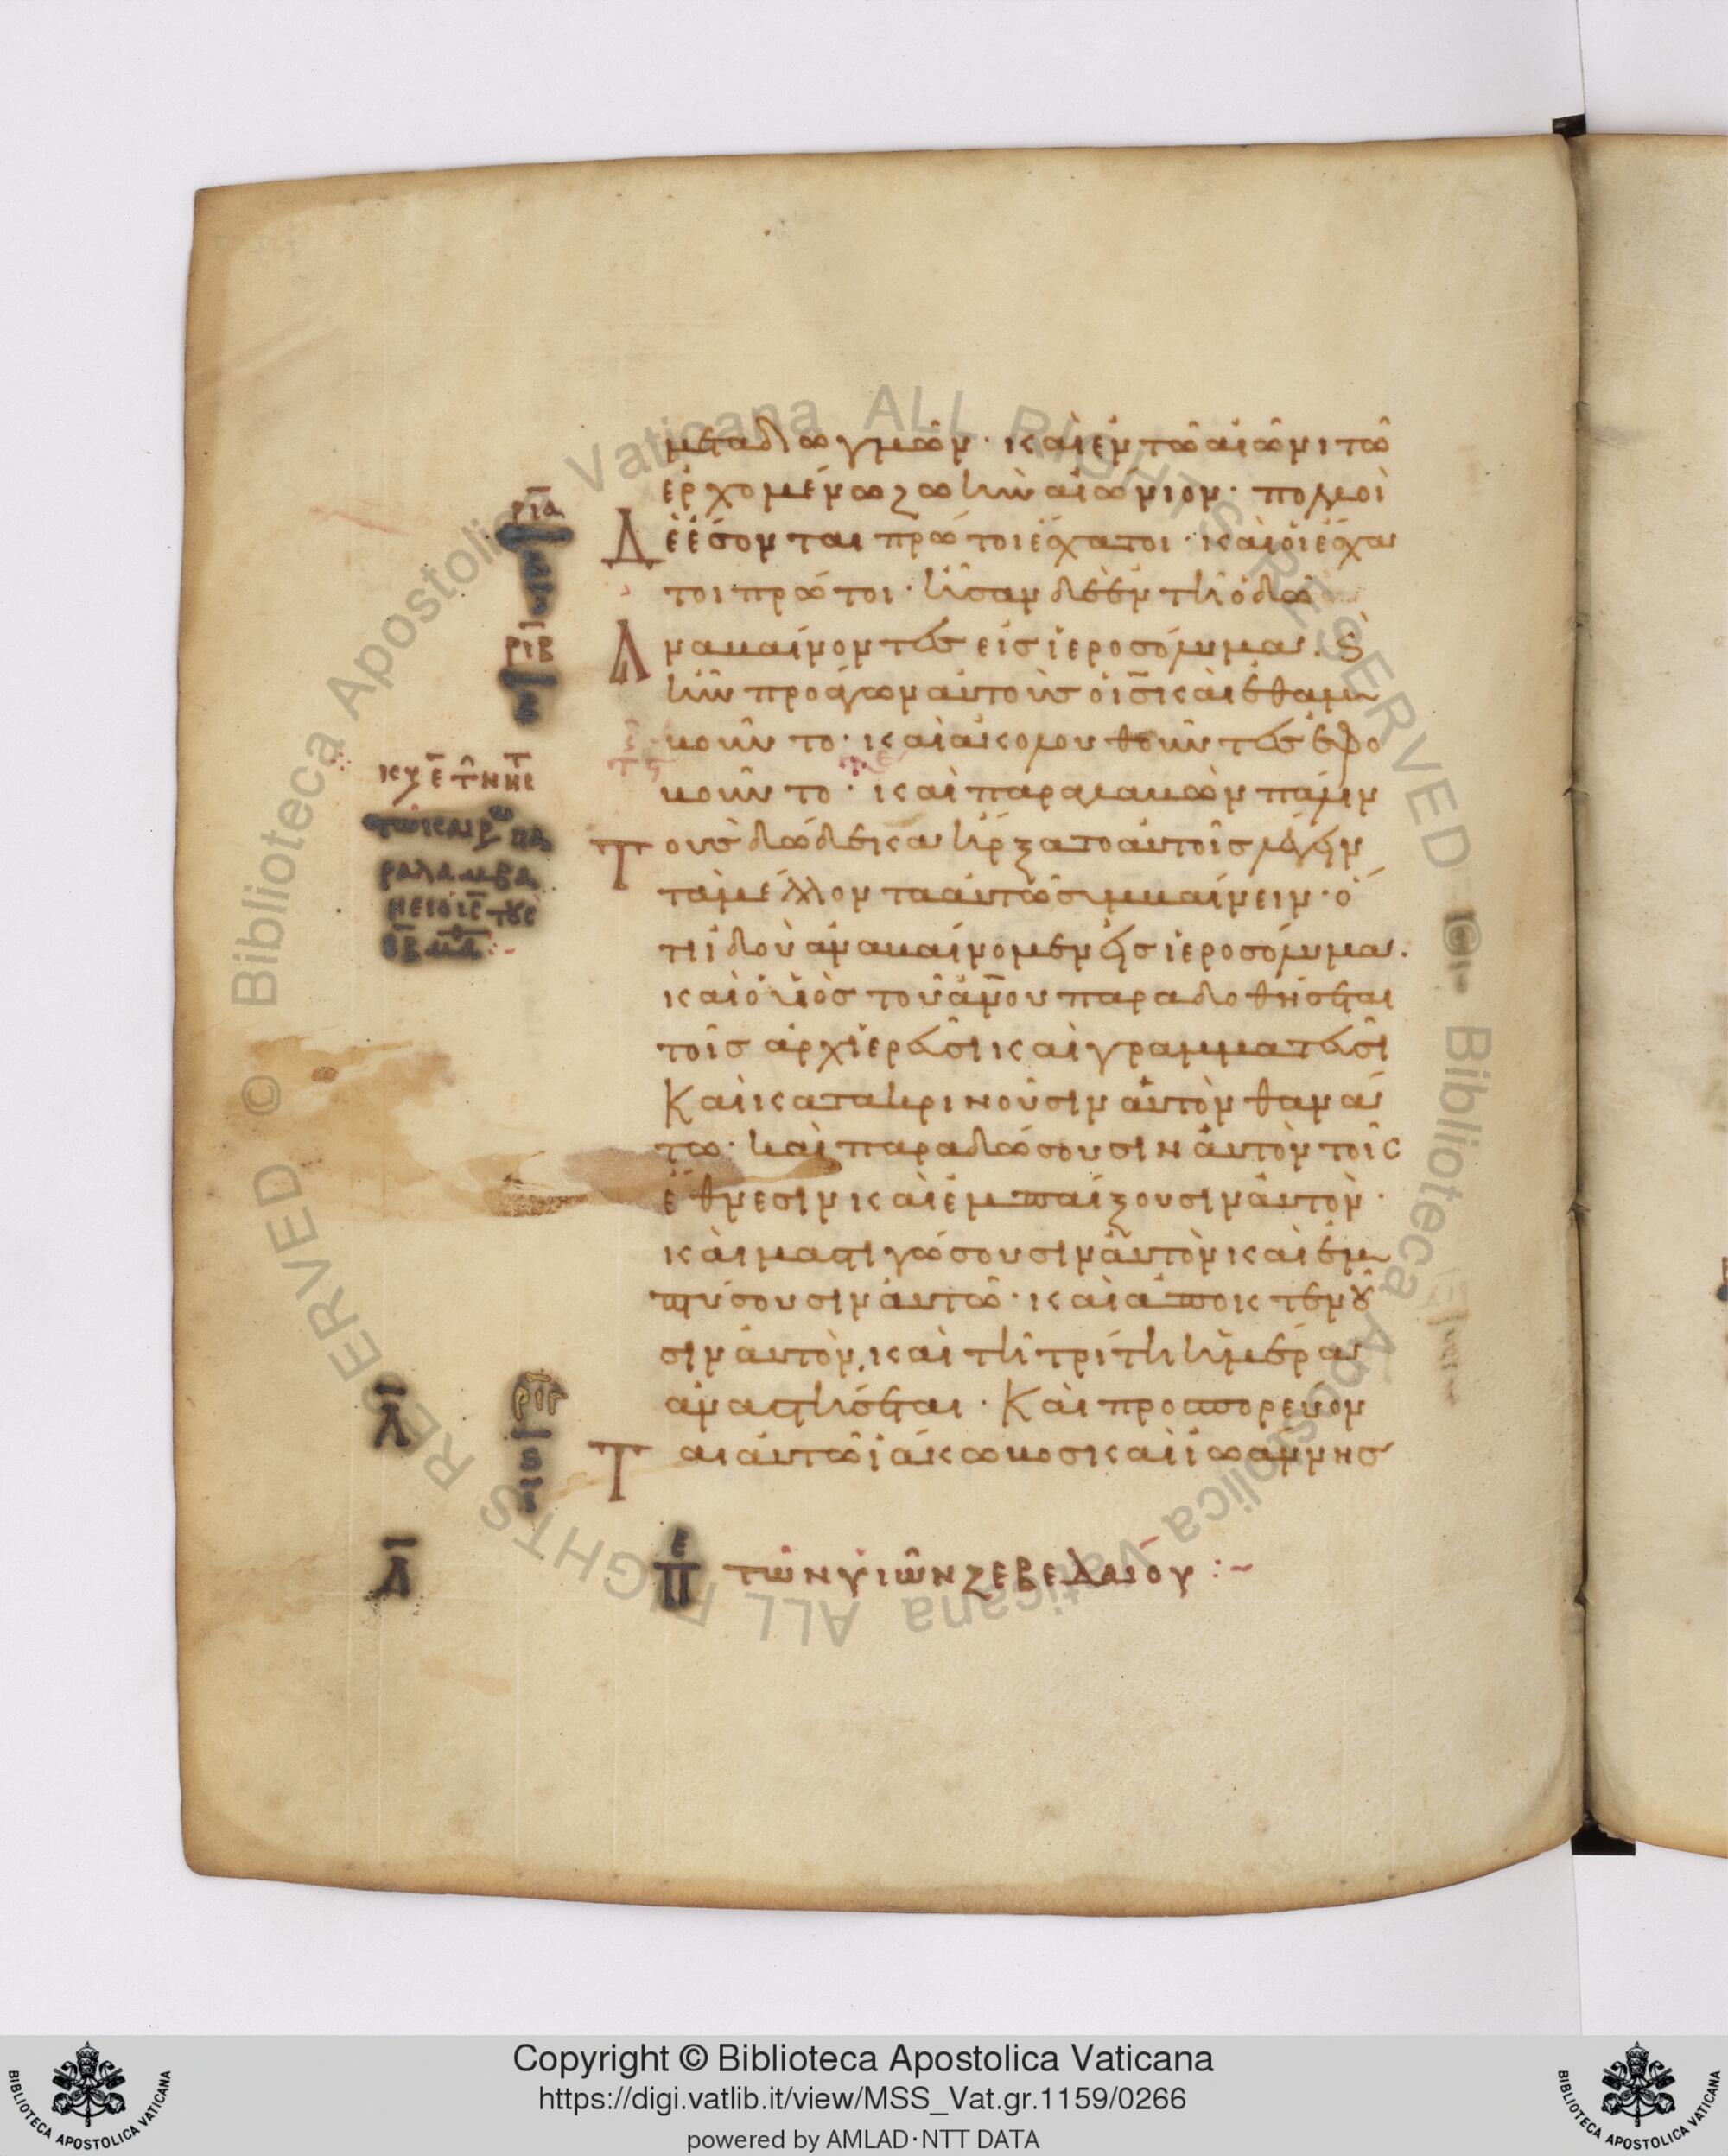 μεταδιωγμῶν· καὶ ἐν τῶ αἰῶνι τῶ
ἐρχομένω ζωὴν αἰώνιον· πολλοὶ
ρια
Δὲ ἔσονται πρῶτοι ἔσχατοι· καὶ οἱ ἔσχα
τοι πρῶτοι· ἦσαν δὲ ἐν τῆ ὁδῶ
ριβ
Ἀναβαίνοντες εἰς ἱεροσόλυμα. ϗ
ἦν προάγων αὐτοὺς ὁ ις καὶ ἐθαμ
βοῦντο· καὶ ἀκολουθοῦντες ἐφο
βοῦντο· καὶ παραλαβὼν πάλιν
Τοὺς δώδεκα ἤρξατο αὐτοῖς λέγειν
τὰ μέλλοντα αὐτῶ συμβαίνειν· ὅ
τι ἰδοὺ ἀναβαίνομεν εἰς ἱεροσόλυμα.
καὶ ὁ υἱὸς τοῦ ανου παραδοθήσεται
τοῖς ἀρχιερεῦσι καὶ γραμματεῦσι
Καὶ κατακρινοῦσιν αὐτὸν θανά
τω· καὶ παραδώσουσιν αὐτὸν τοῖς
ἔθνεσιν καὶ ἐμπαίξουσιν αὐτὸν·
καὶ μαστιγώσουσιν αὐτὸν καὶ ἐμ
πτύσουσιν αὐτῶ· καὶ ἀποκτενοῦ
σιν αὐτὸν, καὶ τῆ τρίτη ἡμέρα
ἀναστήσεται· Καὶ προσπορεύον
Ται αὐτῶ ἰάκωβος καὶ ἰωάννης
Λ
ριγ
ς
ι
κυ ε τ νης
τῶ καιρω πα
ραλαμβα
νει ο ις τους
ιβ μα
Λ
πε τῶν υἱῶν ζεβεδαίου :~
© Biblioteca Apostolica Vaticana ALL RIGHTS RESERVED © Biblioteca Apostolica Vaticana ALL RIGHTS RESERVED
Copyright © Biblioteca Apostolica Vaticana
https://digi.vatlib.it/view/MSS_Vat.gr.1159/0266
powered by AMLAD·NTT DATA
BIBLIOTECA APOSTOLICA VATICANA
BIBLIOTECA APOSTOLICA VATICANA